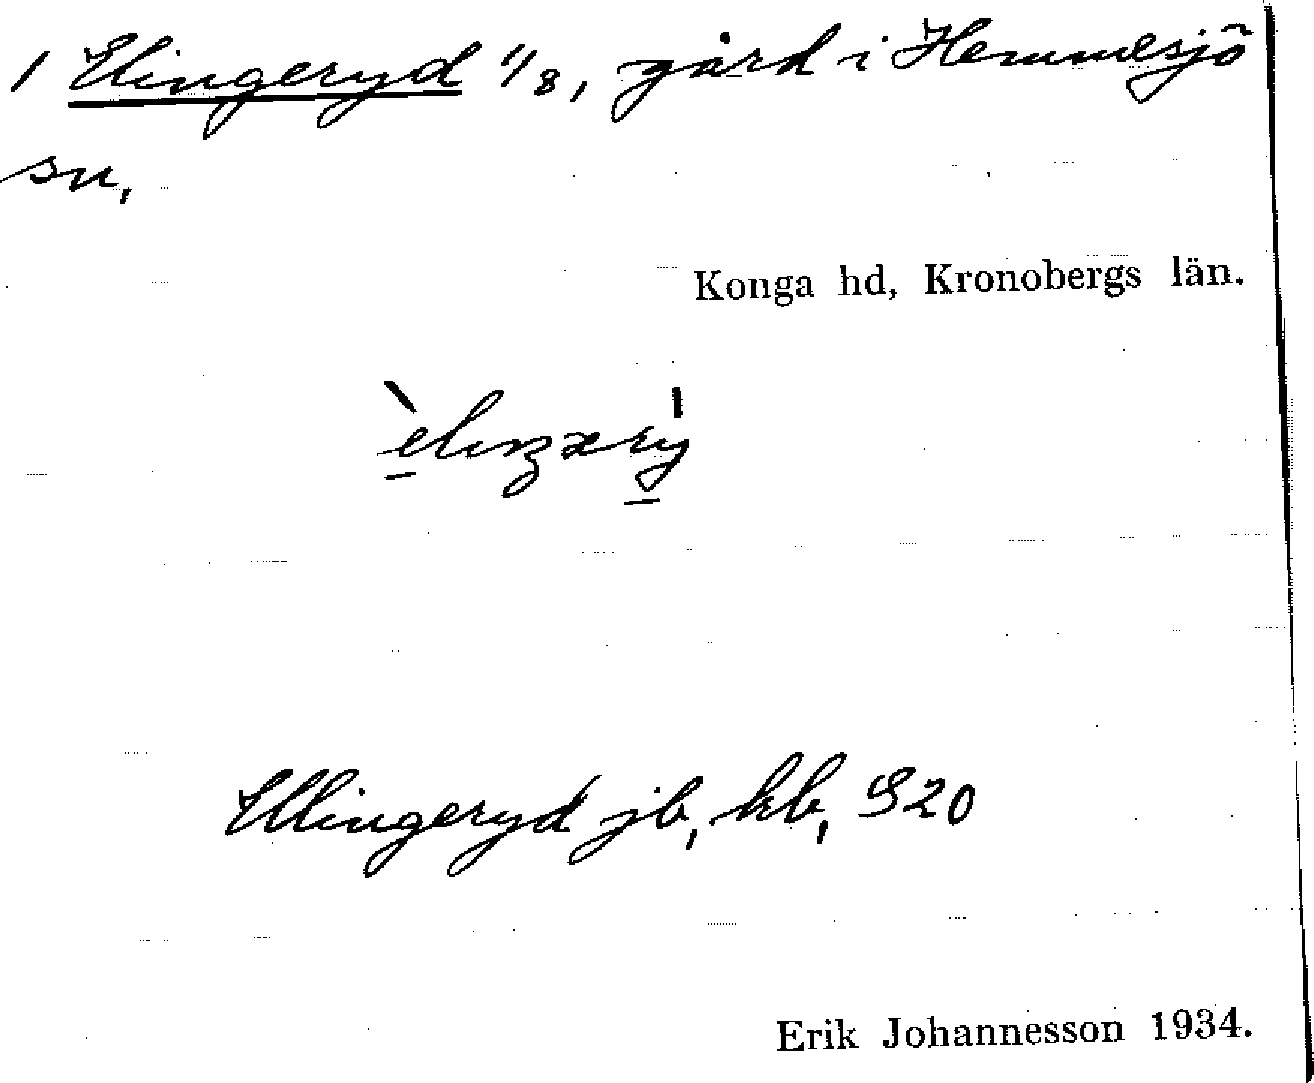 1 Elingeryd 1/8, gård i Hemmesjö
sn,
Konga hd, Kronobergs län.
Ellingeryd jb, kb, S20
Erik Johannesson 1934.